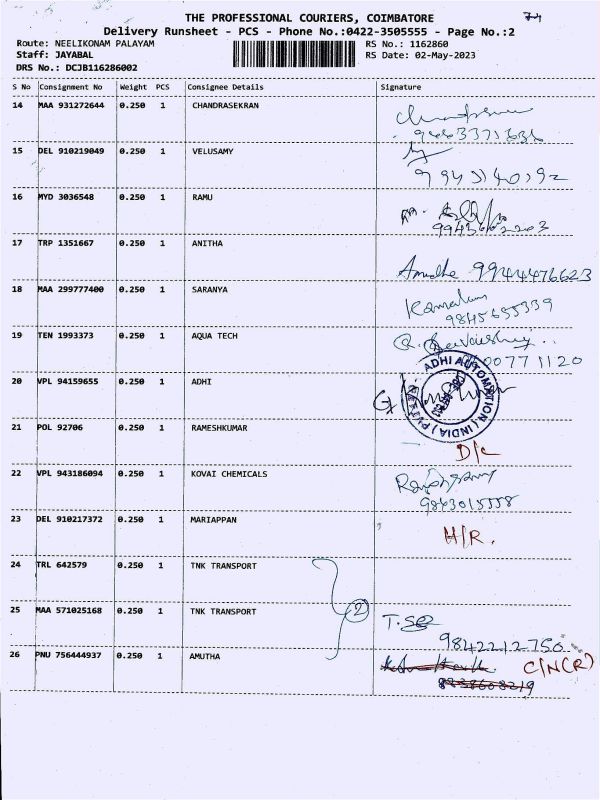 THE PROFESSIONAL COURIERS, COIMBATORE
Delivery Runsheet - PCS - Phone No.:0422-3505555 - Page No.:2
Route: NEELIKONAM PALAYAM RS No.: 1162860
Staff: JAYABAL RS Date: 02-May-2023
DRS No.: DCJB116286002
S No Consignment No Weight PCS Consignee Details Signature
14 MAA 931272644 0.250 1 CHANDRASEKRAN
15 DEL 910219049 0.250 1 VELUSAMY
16 MYD 3036548 0.250 1 RAMU
17 TRP 1351667 0.250 1 ANITHA
9944476623
18 MAA 299777400 0.250 1 SARANYA
9845655339
19 TEN 1993373 0.250 1 AQUA TECH
20 VPL 94159655 0.250 1 ADHI
ADHI AUTOMATION (INDIA) PVT
21 POL 92706 0.250 1 RAMESHKUMAR
D/c
22 VPL 943186094 0.250 1 KOVAI CHEMICALS
9863015558
23 DEL 910217372 0.250 1 MARIAPPAN
H/R.
24 TRL 642579 0.250 1 TNK TRANSPORT
25 MAA 571025168 0.250 1 TNK TRANSPORT
2
9842212750
26 PNU 756444937 0.250 1 AMUTHA
C/N(R)